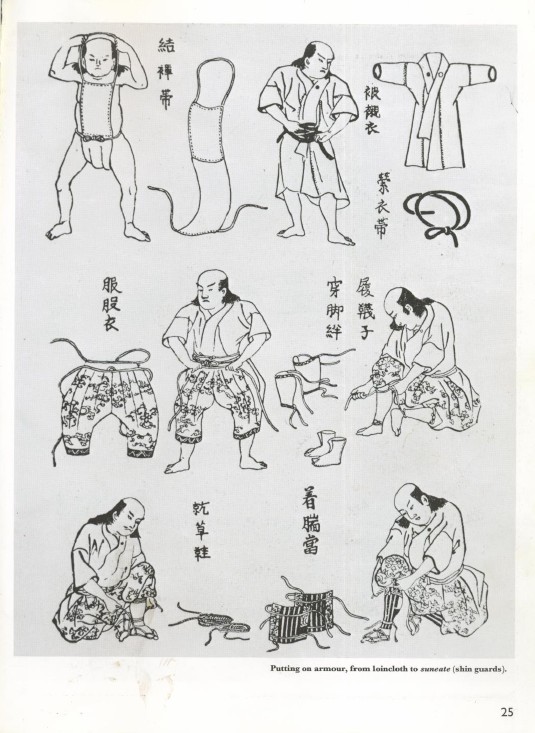 結褌帶
被襯衣
縈衣帶
服股衣
履韈子
穿脚絆
草鞋
着臑當
Putting on armour, from loincloth to suneate (shin guards).
25